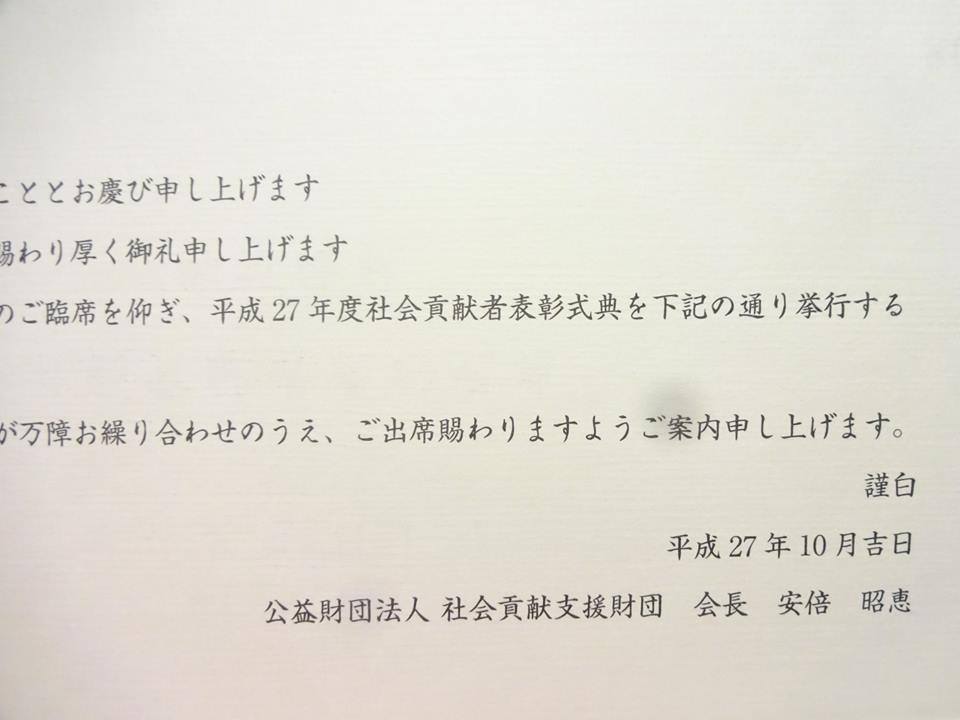 こととお慶び申し上げます
賜わり厚く御礼申し上げます
のご臨席を仰ぎ、平成27年度社会貢献者表彰式典を下記の通り挙行する
が万障お繰り合わせのうえ、ご出席賜わりますようご案内申し上げます。
謹白
平成27年10月吉日
公益財団法人 社会貢献支援財団　会長　安倍　昭恵